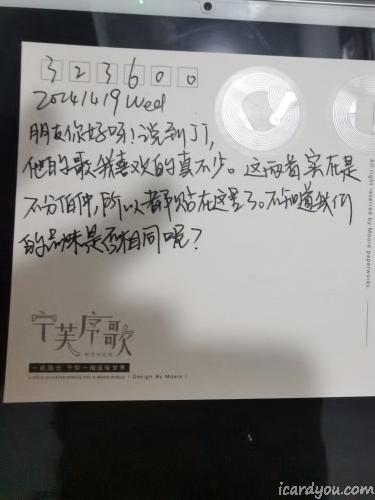 323600
2024/4/19 Wed
朋友你好呀！说到JJ，
他的歌我喜欢的真不少。这两首实在是
不分伯仲，所以都贴在这里了。不知道我们
的品味是否相同呢？
All right reserved by Moore paperworks.
序歌
Design By Moore
icardyou.com